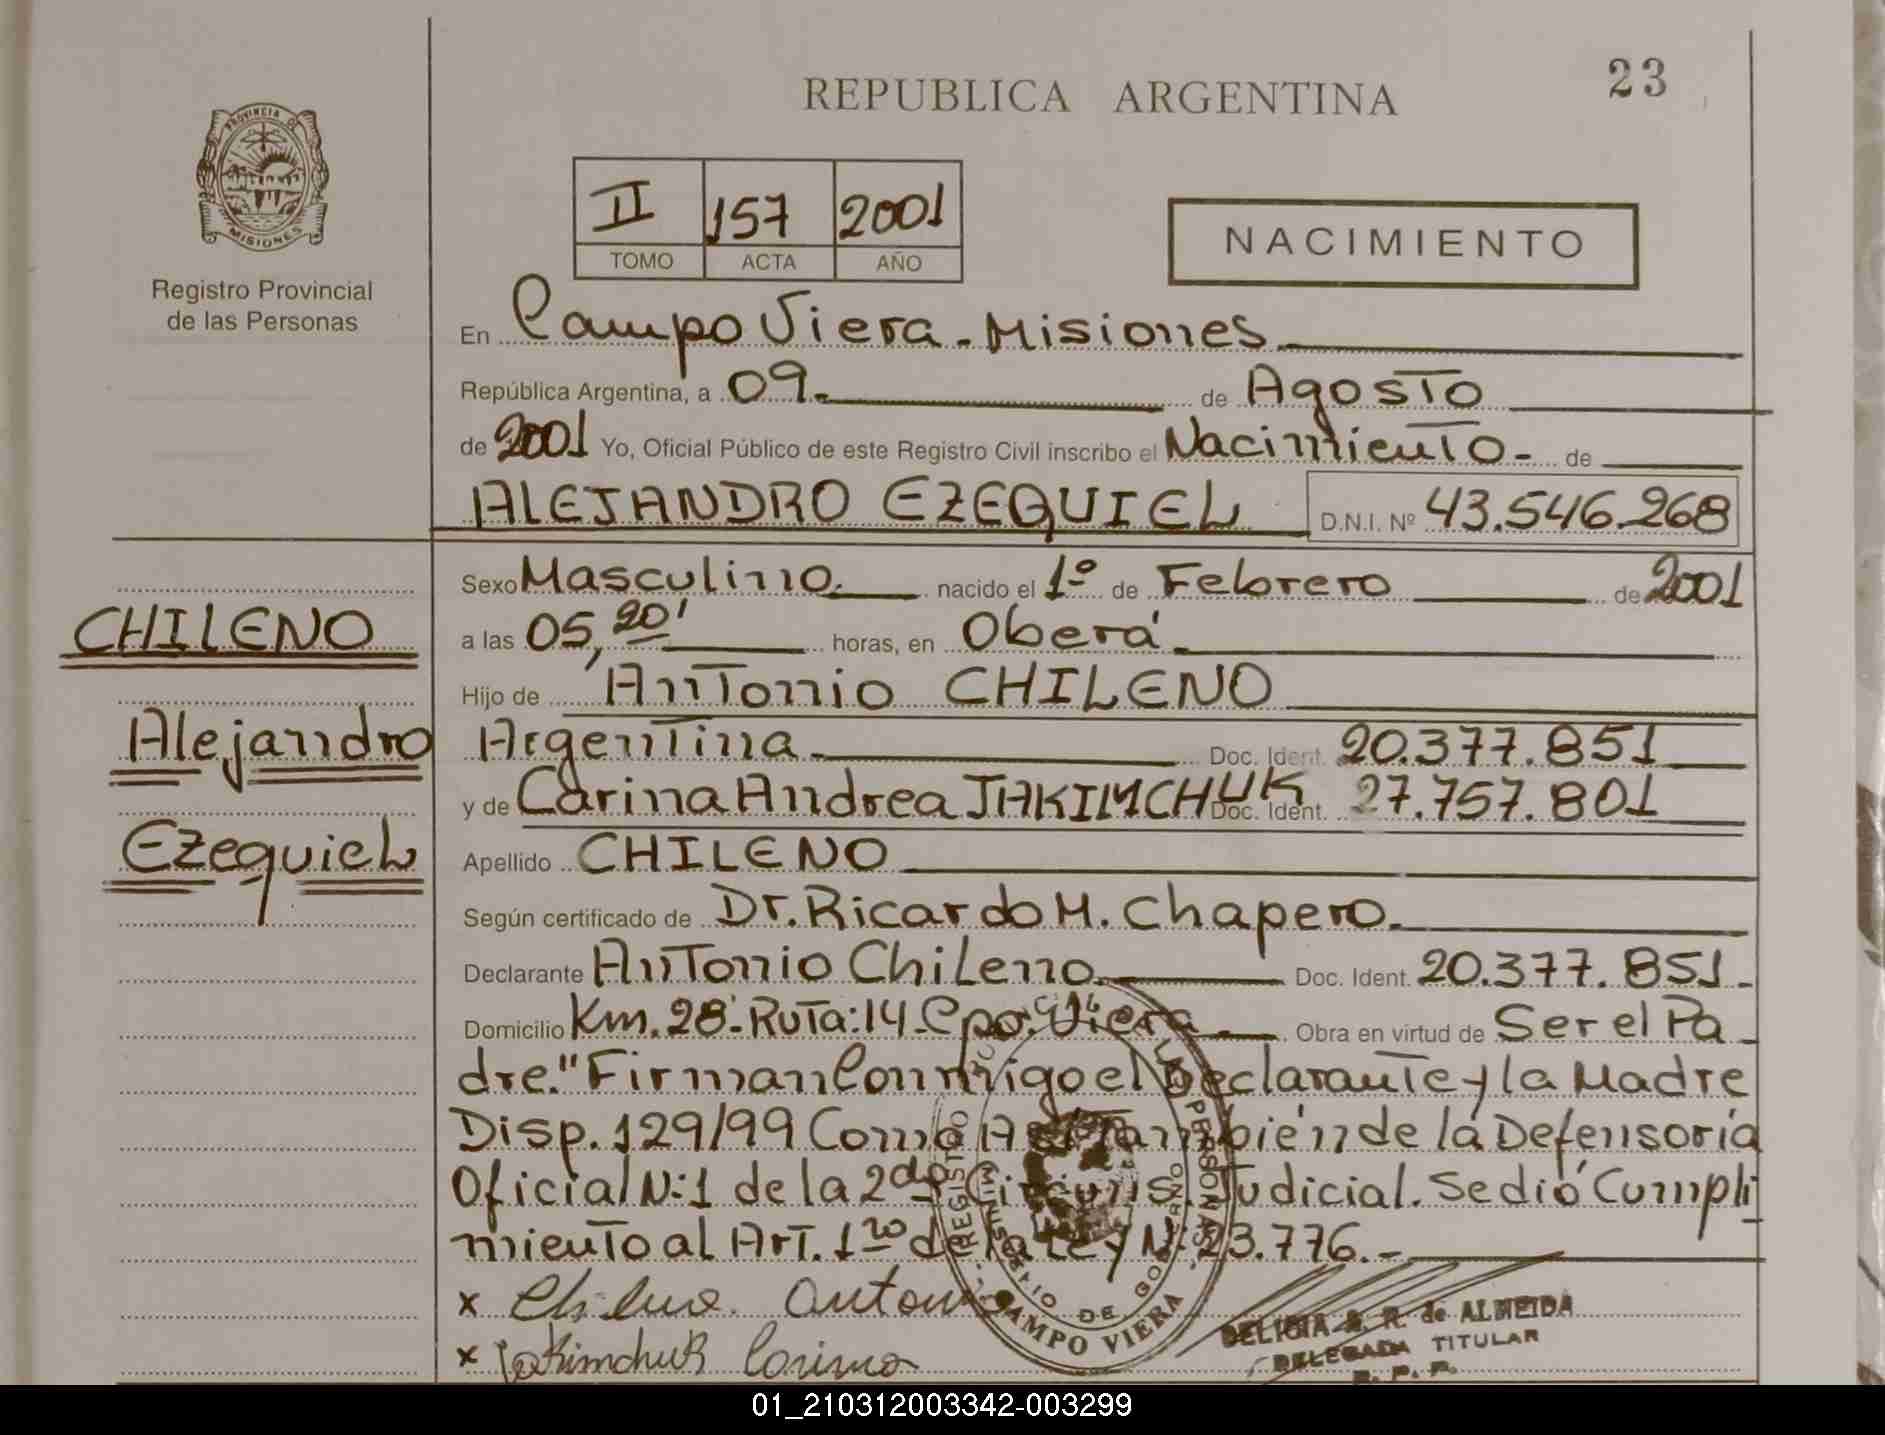 REPUBLICA ARGENTINA
23
PROVINCIA DE
MISIONES
Registro Provincial
de las Personas
II 157 2001
TOMO ACTA AÑO
NACIMIENTO
En Campo Viera - Misiones
República Argentina, a 09. de Agosto
de 2001 Yo, Oficial Público de este Registro Civil inscribo el Nacimiento- de
ALEJANDRO EZEQUIEL D.N.I. Nº 43.546.268
Sexo Masculino. nacido el 1º de Febrero de 2001
CHILENO
a las 05,20' horas, en Oberá
Hijo de Antonio CHILENO
Alejandro
Argentina Doc. Ident. 20.377.851
y de Carina Andrea JAKIMCHUK Doc. Ident. 27.757.801
Ezequiel
Apellido CHILENO
Según certificado de Dr. Ricardo M. Chapero.
Declarante Antonio Chileno. Doc. Ident. 20.377.851-
Domicilio Km. 28- Ruta: 14- Cpo. Viera Obra en virtud de Ser el Pa
dre." Firman Conmigo el Declarante y la Madre
Disp. 129/99 Como Así También de la Defensoría
Oficial N: 1 de la 2da Circuns. Judicial. Se dió Cumpli
miento al Art. 1ro de la Ley N: 23.776.-
x Chileno Antonio
x Jakimchuk Carina
REGISTRO PERSONAS
MINISTERIO DE GOBIERNO
CAMPO VIERA
DELICIA R. de ALMEIDA
DELEGADA TITULAR
R. P. P.
01_210312003342-003299